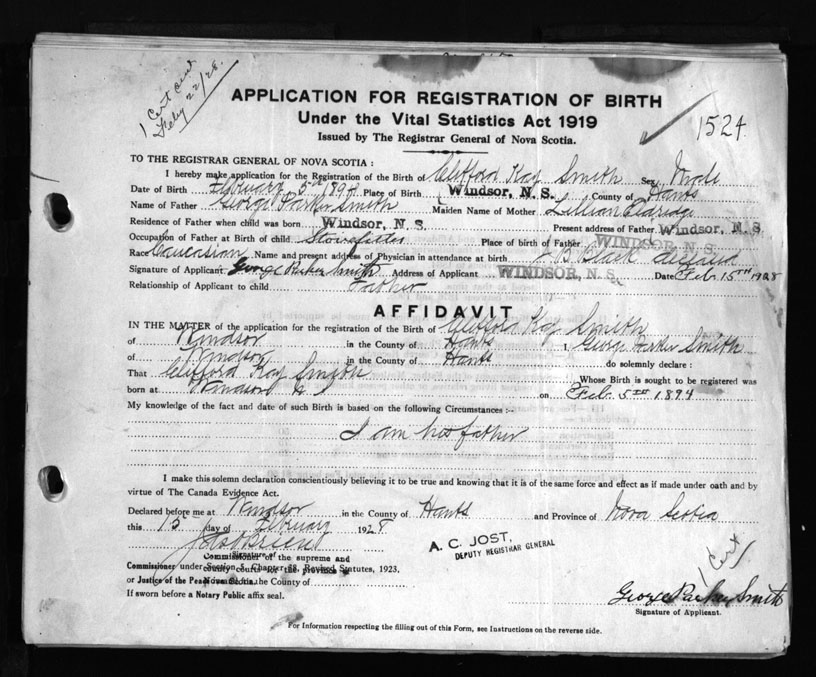 1 Cert out
Feby 22/28.
APPLICATION FOR REGISTRATION OF BIRTH
Under the Vital Statistics Act 1919
Issued by The Registrar General of Nova Scotia.
1524
TO THE REGISTRAR GENERAL OF NOVA SCOTIA:
I hereby make application for the Registration of the Birth of Clifford Kay Smith Sex Male
Date of Birth February 5th 1894 Place of Birth Windsor, N. S. County of Hants
Name of Father George Parker Smith Maiden Name of Mother Lillian Eldridge
Residence of Father when child was born Windsor, N. S. Present address of Father Windsor, N. S.
Occupation of Father at Birth of child Stovefitter Place of birth of Father WINDSOR, N. S.
Race Caucasion Name and present address of Physician in attendance at birth J B Black deceased
Signature of Applicant George Parker Smith Address of Applicant WINDSOR, N. S. Date Feb. 15th 1928
Relationship of Applicant to child Father
AFFIDAVIT
IN THE MATTER of the application for the registration of the Birth of Clifford Kay Smith
of Windsor in the County of Hants I, George Parker Smith
of Windsor in the County of Hants do solemnly declare:
That Clifford Kay Smith Whose Birth is sought to be registered was
born at Windsor N S on Feb. 5th 1894
My knowledge of the fact and date of such Birth is based on the following Circumstances:-
I am his father
I make this solemn declaration conscientiously believing it to be true and knowing that it is of the same force and effect as if made under oath and by
virtue of The Canada Evidence Act.
Declared before me at Windsor in the County of Hants and Province of Nova Scotia
this 15 day of February 1928
A. C. JOST,
DEPUTY REGISTRAR GENERAL
Signature of
Commissioner of the supreme and
Commissioner under Section Chapter 38, Revised Statutes, 1923,
county courts for the province
or Justice of the Peace in the County of
If sworn before a Notary Public affix seal.
1 Cert
George Parker Smith
Signature of Applicant.
For Information respecting the filling out of this Form, see Instructions on the reverse side.